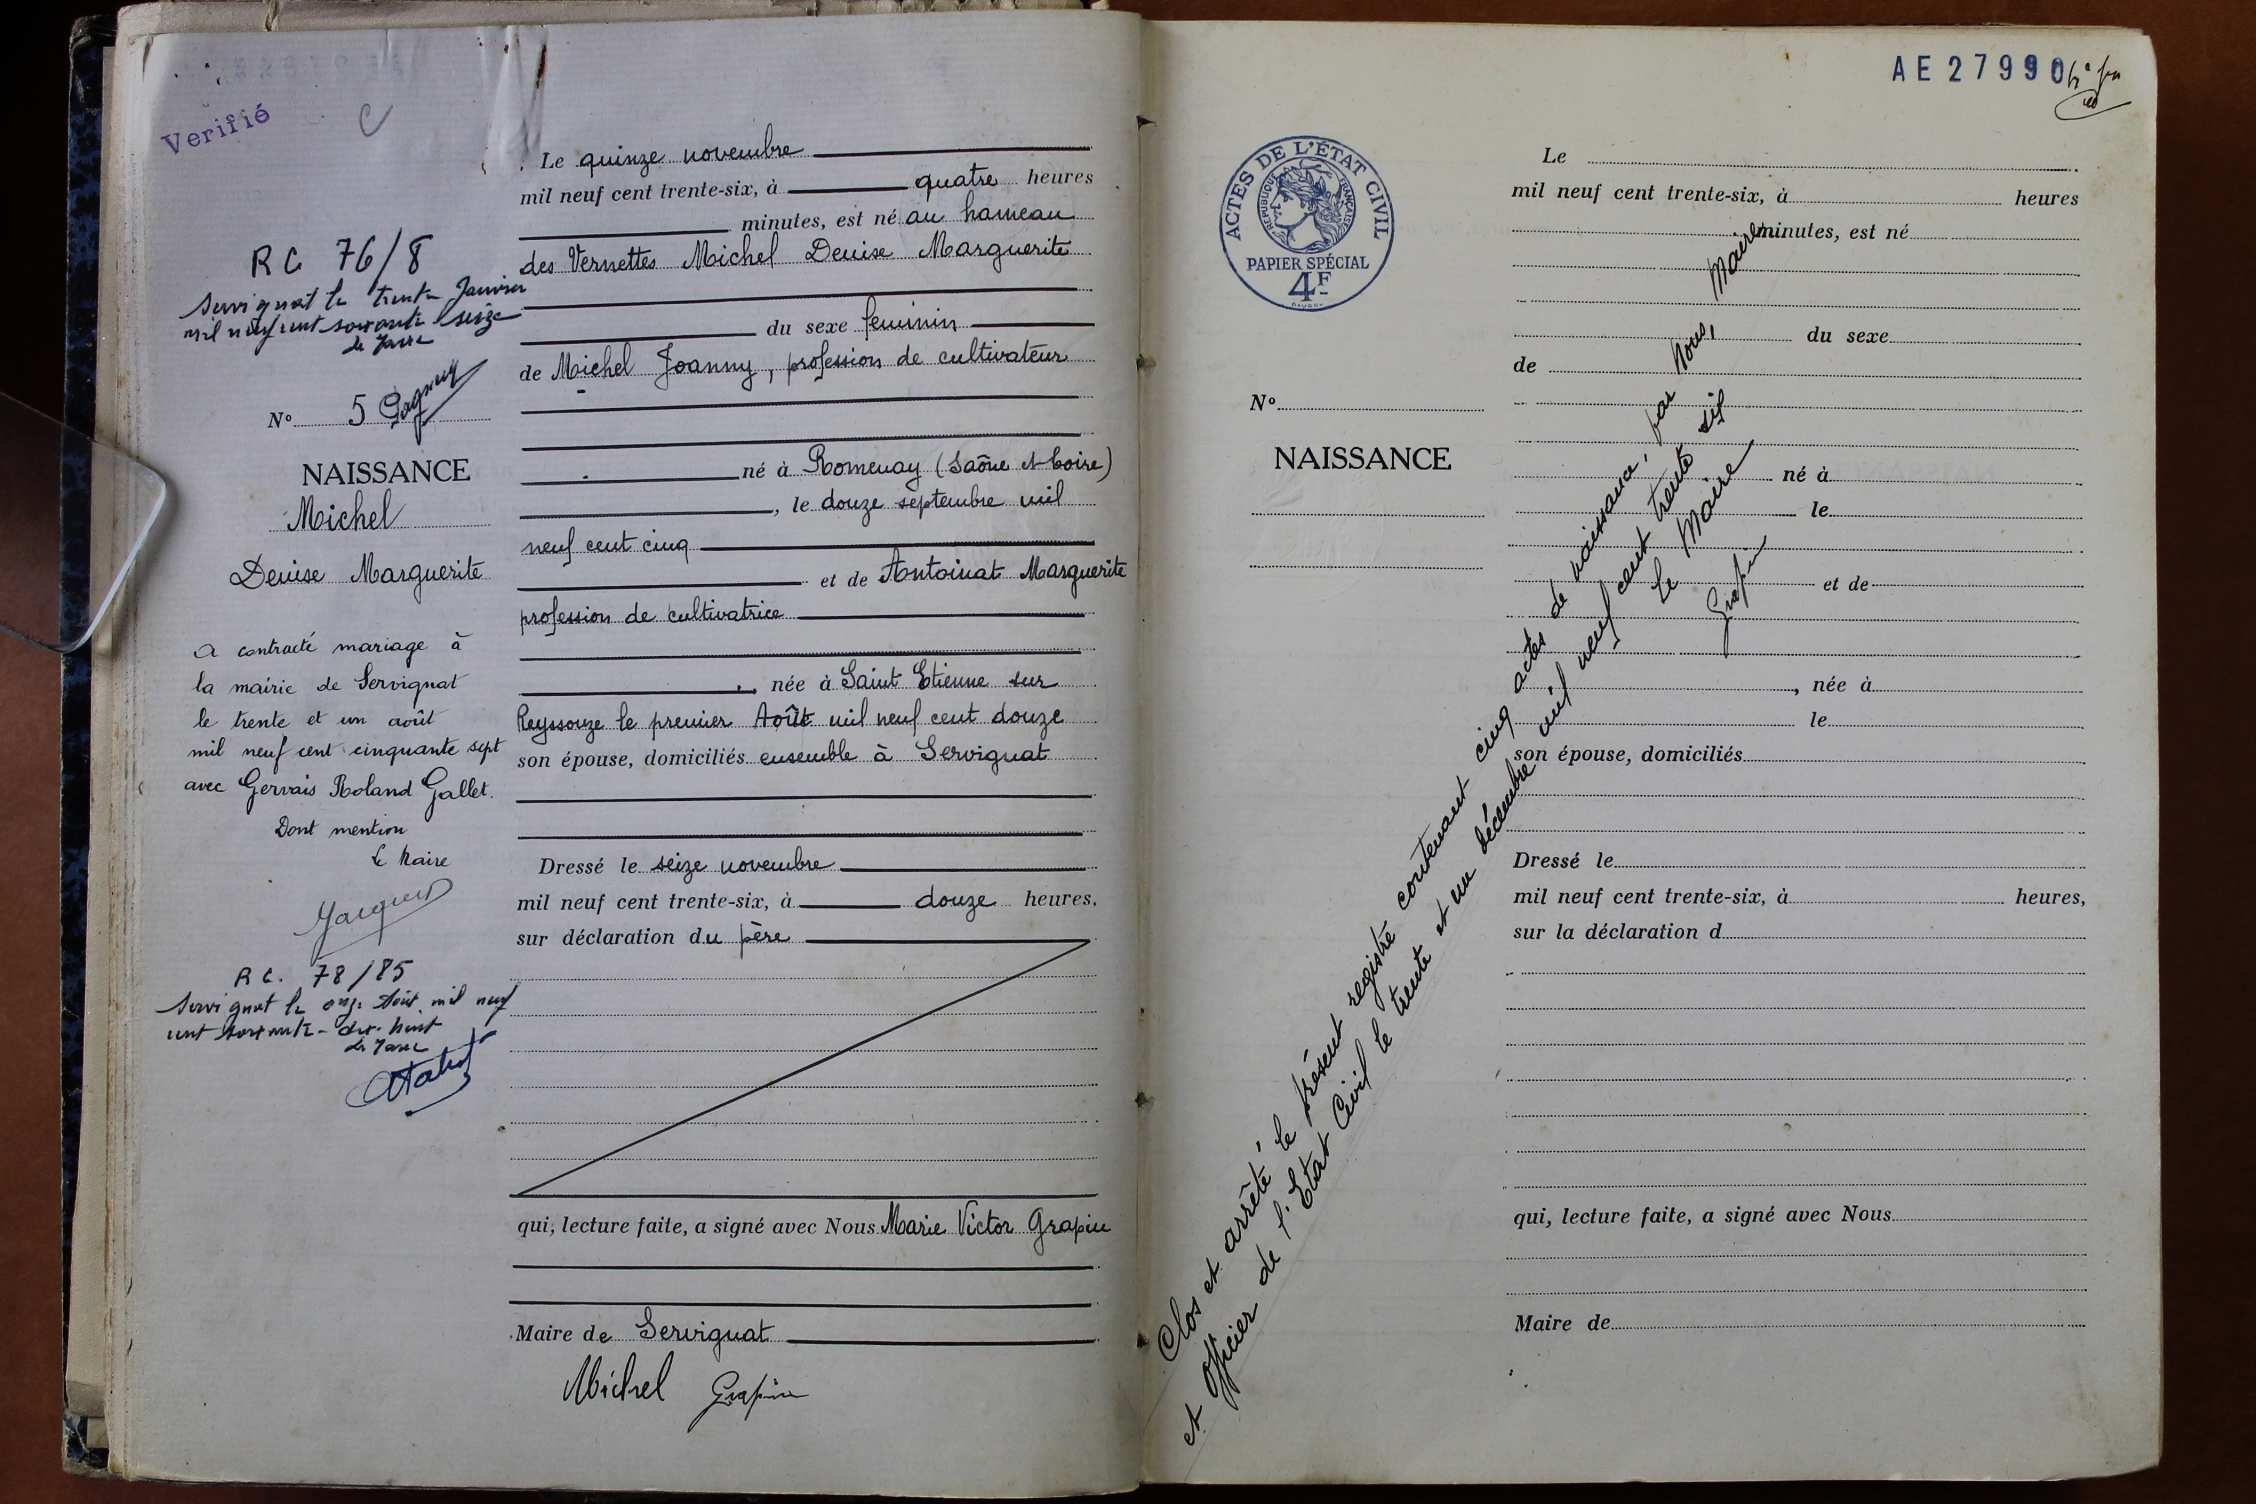 Verifié
C
R C 76/8
Servignat le trente Janvier
mil neuf cent soixante seize
N° 5
NAISSANCE
Michel
Denise Marguerite
a contracté mariage à
la mairie de Servignat
le trente et un août
mil neuf cent cinquante sept
avec Gervais Roland Gallet.
Dont mention
Le Maire
R C. 78/85
Servignat le onze Août mil neuf
cent soixante-dix-huit
Le quinze novembre
mil neuf cent trente-six, à quatre heures
minutes, est né au hameau
des Vernettes Michel Denise Marguerite
du sexe feminin
de Michel Joanny, profession de cultivateur
né à Romenay (Saône et Loire)
, le douze septembre mil
neuf cent cinq
et de Antoinat Marguerite
profession de cultivatrice
, née à Saint Etienne sur
Reyssouze le premier Août mil neuf cent douze
son épouse, domiciliés ensemble à Servignat
Dressé le seize novembre
mil neuf cent trente-six, à douze heures,
sur déclaration du père
qui, lecture faite, a signé avec Nous Marie Victor Grapin
Maire de Servignat
Michel Grapin
AE 27990
ACTES DE L'ÉTAT CIVIL
RÉPUBLIQUE FRANÇAISE
PAPIER SPÉCIAL
4F
N°
NAISSANCE
Le
mil neuf cent trente-six, à heures
minutes, est né
du sexe
de
né à
le
et de
, née à
le
son épouse, domiciliés
Dressé le
mil neuf cent trente-six, à heures,
sur la déclaration d
qui, lecture faite, a signé avec Nous
Maire de
Clos et arrêté le présent registre contenant cinq actes de naissance, par Nous, Maire
et officier de l'Etat Civil le trente et un décembre mil neuf cent trente six
Le Maire
Grapin